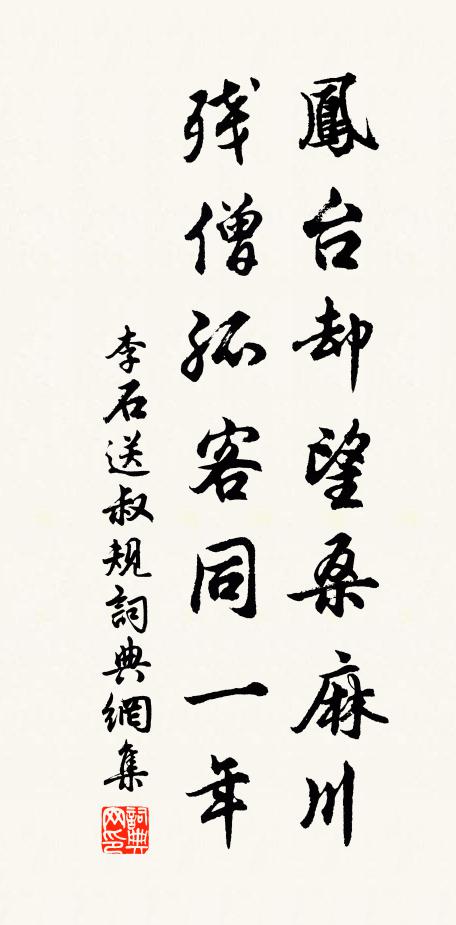 鳳台却望桑麻川
残僧孤客同一年
李石送叔規詞典網集
詞典网印